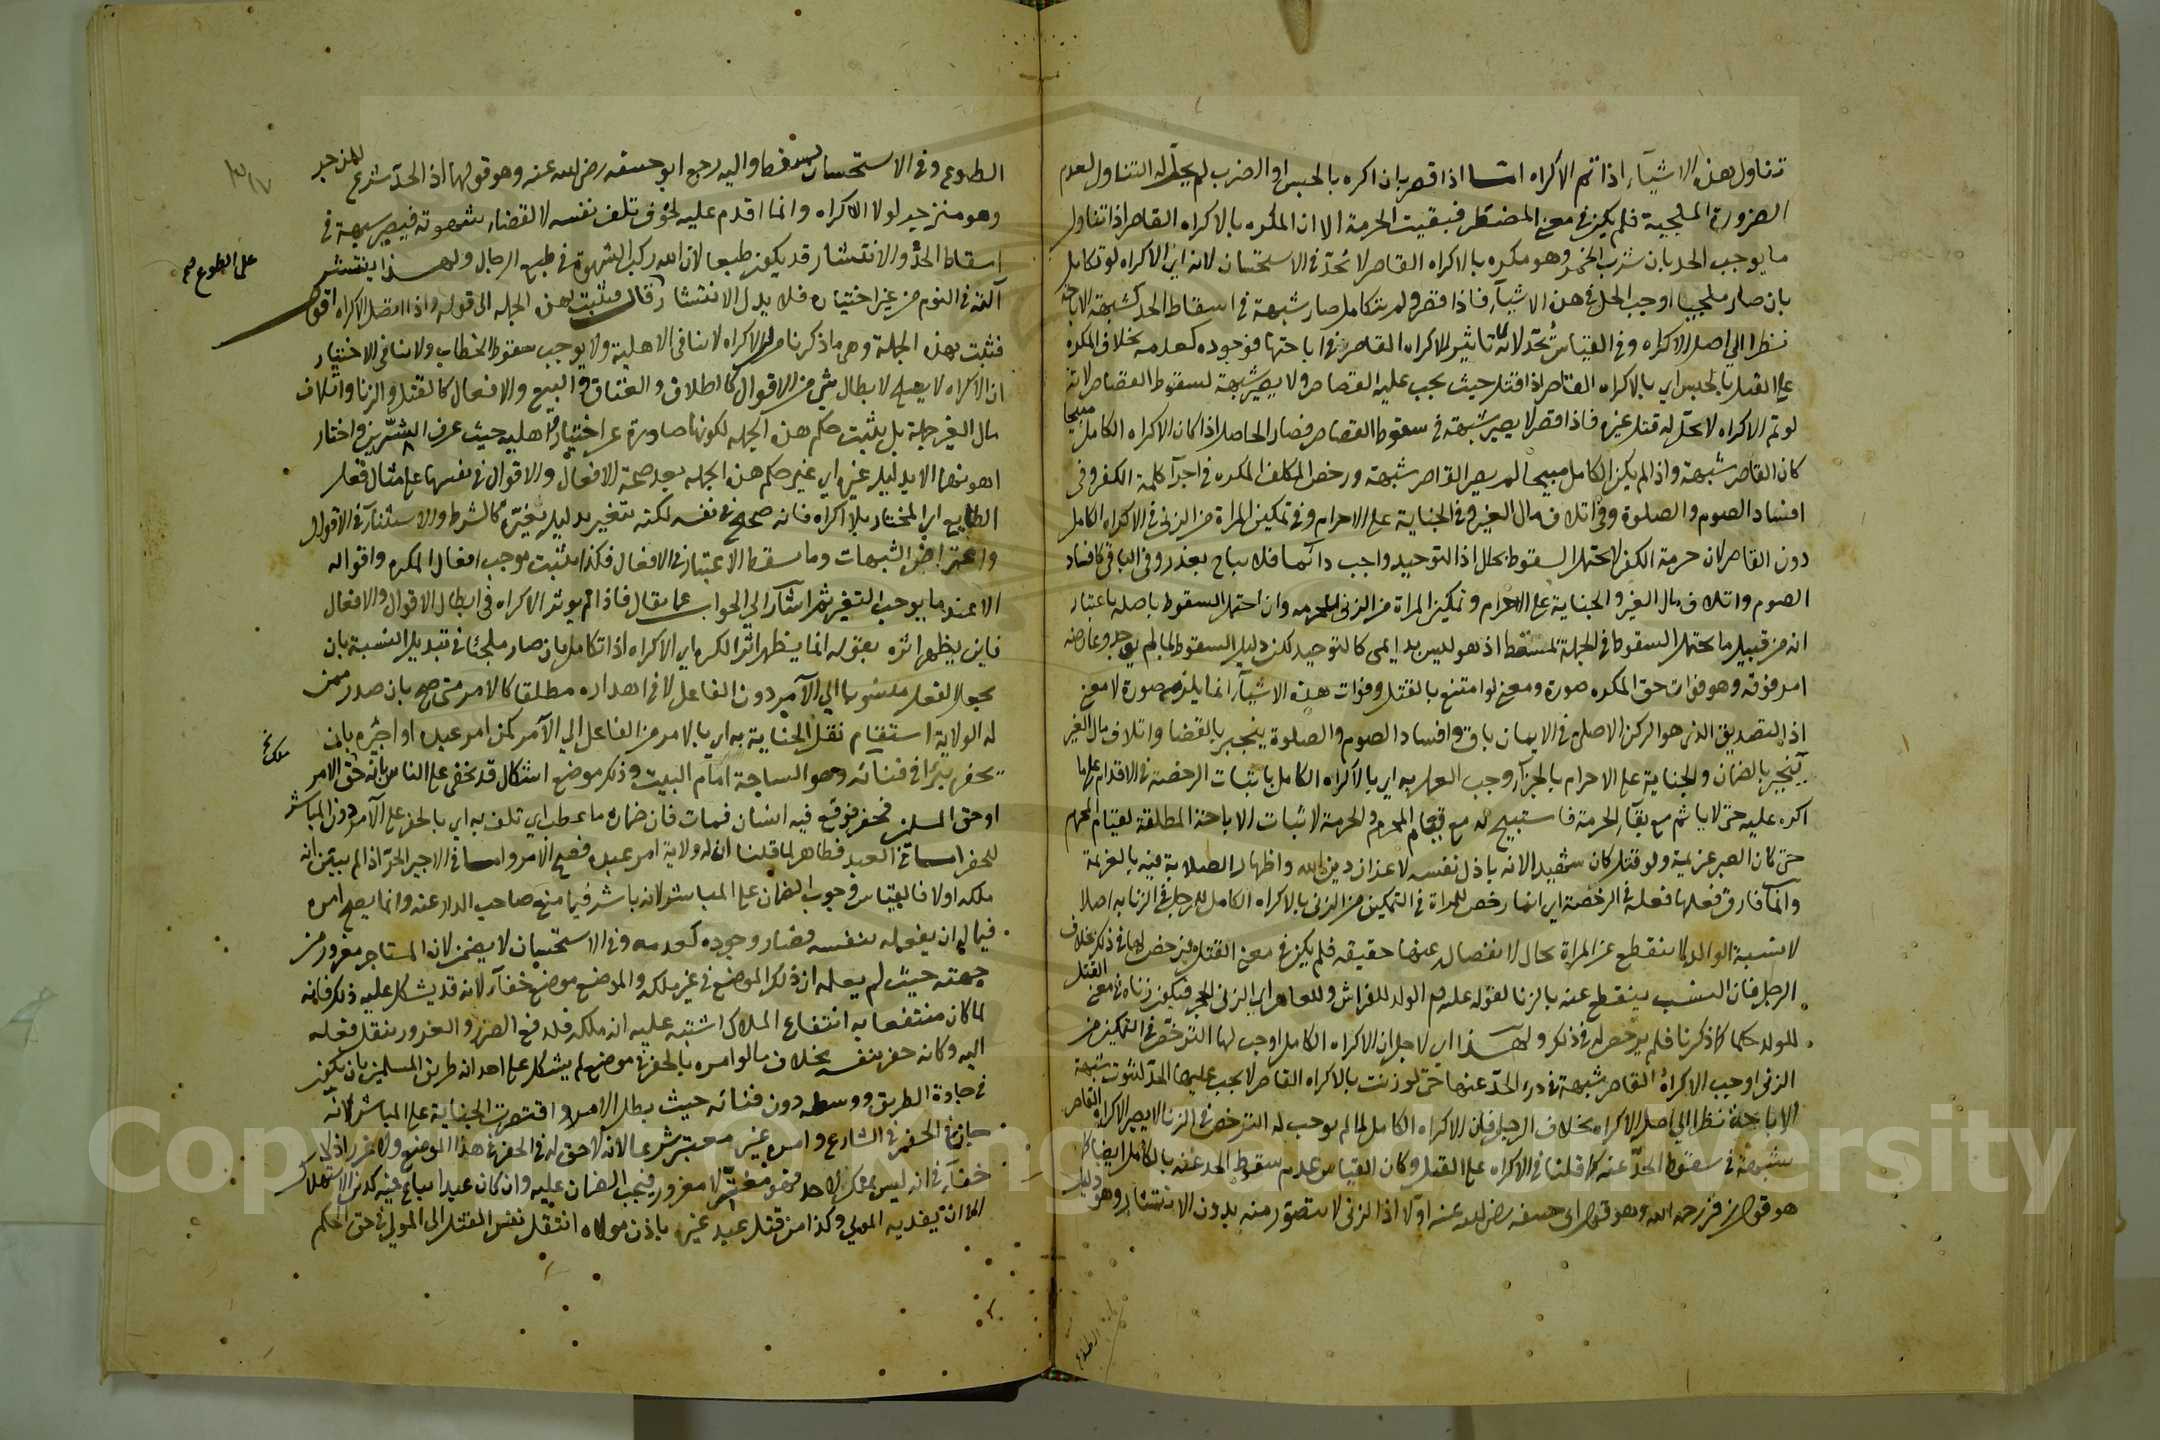 تناول هذه الاشيآء اذا تم الاكراه اما اذا قصر بان اكره بالحبس او الضرب لم يحل له التناول لعدم
الضرورة الملجية فلم يكن في معنى المضطر فبقيت الحرمة الا ان المكره بالاكراه القاصر اذا تناول
ما يوجب الحد بان شرب الخمر وهو مكره بالاكراه القاصر لا يُحدّ في الاستحسان لانه اي الاكراه لو تكامل
بان صار ملجيا اوجب الحل في هذه الاشيآء فاذا قصر ولم يتكامل صار شبهة في اسقاط الحد كشبهة الاباحة
نظرا الي اصل الاكراه وفي القياس يُحدّ لانه لا تاثير للاكراه القاصر في اباحتها فوجوده كعدمه بخلاف المكره
على القتل بالحبس اي بالاكراه القاصر اذا قتل حيث يجب عليه القصاص ولا يصير شبهة لسقوط القصاص لانه
لو تم الاكراه لا يحل له قتل غيره فاذا قصر لا يصير شبهة في سقوط القصاص فصار الحاصل اذا كان الاكراه الكامل مبيحا
كان القاصر شبهة واذا لم يكن الكامل مبيحا لم يصر القاصر شبهة ورخص المكلف المكره في اجرآء كلمة الكفر وفي
افساد الصوم والصلوة وفي اتلاف مال الغير وفي الجناية على الاحرام وفي تمكين المراة من الزنى في الاكراه الكامل
دون القاصر لان حرمة الكفر لا يحتمل السقوط بحال اذ التوحيد واجب دائما فلا يباح بعذر وفي الباقي كافساد
الصوم واتلاف مال الغير والجناية على الاحرام وتمكين المراة من الزنى الحرمة وان احتمل السقوط باصله باعتبار
انه من قبيل ما يحتمل السقوط في الجملة لم تسقط اذ هو ليس بدايمى كالتوحيد لكن دليل السقوط لما لم يوجد وعارضه
امر فوقه وهو فوات حق المكره صورة ومعنى لو امتنع بالقتل وفوات هذه الاشيآء انما يلزم صورة لا معنى
اذ التصديق الذي هو الركن الاصلي في الايمان باق وافساد الصوم والصلوة ينجبر بالقضا واتلاف مال الغير
ينجبر بالضمان والجناية على الاحرام بالجزآء وجب العمل به اي بالاكراه الكامل باثبات الرخصة في الاقدام على ما
اكره عليه حتى لا ياثم مع بقآء الحرمة فاستبيح له مع قيام المحرم والحرمة لا باثبات الاباحة المطلقة لقيام المحرم
حتى كان الصبر عزيمة ولو قتل كان شهيدا لانه باذل نفسه لاعزاز دين الله واظهار الصلابة فيه بالعزيمة
وانما فارق فعلها فعله في الرخصة اي انما رخص للمراة في التمكين من الزنى بالاكراه الكامل لا للرجل في الزنا به اصلا
لان نسبة الولد لا ينقطع عن المراة بحال لانفصاله عنها حقيقة فلم يكن في معنى القتل فيرخص لها في ذلك بخلاف
الرجل فان النسب ينقطع عنه بالزنا لقوله عليه م الولد للفراش وللعاهر اي الزاني الحجر فيكون زناه في معنى القتل
للولد حكما كما ذكرنا فلم يرخص له في ذلك ولهذا اي لاجل ان الاكراه الكامل اوجب لها الترخص في التمكين من
الزنى اوجب الاكراه القاصر شبهة في درء الحد عنها حتى لو زنت بالاكراه القاصر لا يجب عليها الحد لثبوت شبهة
الاباحة نظرا الي اصل الاكراه بخلاف الرجل فان الاكراه الكامل لما لم يوجب له الترخص في الزنا لا يصير الاكراه القاصر
شبهة في سقوط الحد عنه كما قلنا في الاكراه على القتل وكان القياس عدم سقوط الحد عنه بالكامل ايضا كما
هو قول زفر رحمه الله وهو قول ابي حنيفه رضي الله عنه اولا اذ الزنى لا يتصور منه بدون الانتشار وهو دليل
الطوع
الطوع وفي الاستحسان يسقط واليه رجع ابو حنيفه رضي الله عنه وهو قولهما اذ الحد شرع للمزجر
وهو منزجر لولا الاكراه وانما اقدم عليه لخوف تلف نفسه لا لقضاء شهوته فيصير شبهة في
اسقاط الحد والانتشار قد يكون طبعا لان الله ركب الشهوة في طبع الرجال ولهذا ينتشر
آلته في النوم من غير اختياره فلا يدل الانتشار على الطوع صح
قال فثبت بهذه الجملة الى قوله واذا اقتصر الاكراه اقول
فثبت بهذه الجملة وهي ما ذكرنا من ان الاكراه لا ينافي الاهلية ولا يوجب سقوط الخطاب ولا ينافي الاختيار
ان الاكراه لا يصلح لابطال شئ من الاقوال كالطلاق والعتاق والبيع والافعال كالقتل والزنا واتلاف
مال الغير جملة بل يثبت حكم هذه الجملة لكونها صادرة عن اختيار اهلية حيث عرف الشرين واختار
اهونهما الا بدليل غيره اي غير حكم هذه الجملة بعد صحة الافعال والاقوال في نفسها على مثال فعل
الطايع اي المختار بلا اكراه فانه صحيح في نفسه لكنه يتغير بدليل يغيره كالشرط والاستثنآء في الاقوال
واعتراض الشبهات وما يسقط الاعتبار في الافعال فكذا يثبت موجب افعال المكره واقواله
الا عند ما يوجب التغير ثم اشار الي الجواب عما يقال فاذا لم يوثر الاكراه في ابطال الاقوال والافعال
فاين يظهر اثره بقوله انما يظهر اثر الكره اي الاكراه اذا تكامل بان صار ملجئا في تبديل النسبة بان
يجعل الفعل منسوبا الي الآمر دون الفاعل لا في اهداره مطلقا كالامر متى صح بان صدر ممن
له الولاية استقام نقل الجناية به اي بالامر من الفاعل الي الآمر كمن امر عبده او اجيره بان
يحفر بئرا في فنائه وهو الساحة امام البيت وذلك موضع اشكال قد يخفى على الناس بانه ملكه حق الامر
او حق المسلمين فحفر فوقع فيه انسان فمات فان ضمان ما عطب اي تلف به اي بالحفر على الآمر دون المباشر
للحفر اما في العبد فظاهر لما قلنا ان له ولاية امر عبده فصح الامر واما في الاجير الحر اذا لم يبين انه
ملكه او لا فالقياس وجوب الضمان على المباشر لانه باشر فيما منع صاحب الدار عنه وانما يصح امره
فيما له ان يفعله بنفسه فصار وجوده كعدمه وفي الاستحسان لا يضمن لان المستاجر مغرور من
جهته حيث لم يعلم ان ذلك الموضع في غير ملكه والموضع موضع خفآء لانه قد يشكل عليه ذلك فانه
لما كان منتفعا به انتفاع الملاك اشتبه عليه انه ملكه فلدفع الضرر والغرور ينقل فعله
اليه وكانه حفر بنفسه بخلاف ما لو امره بالحفر في موضع لم يشكل على احد انه طريق المسلمين بان يكون
في جادة الطريق ووسطه دون فنائه حيث بطل الامر واقتصرت الجناية على المباشر لانه
جان في الحفر في الشارع وامره غير معتبر شرعا لانه لا حق له في الحفر في هذا الموضع ولا غرر اذ لا
خفآء في انه ليس بملك لاحد فهو مغتر لا مغرور فيجب الضمان عليه وان كان عبدا يباع فيه كدين الاستهلاك
الا ان يفديه المولي وكذا من قتل عبد غيره باذن مولاه انتقل نفس القتل الى المولى في حق الحكم